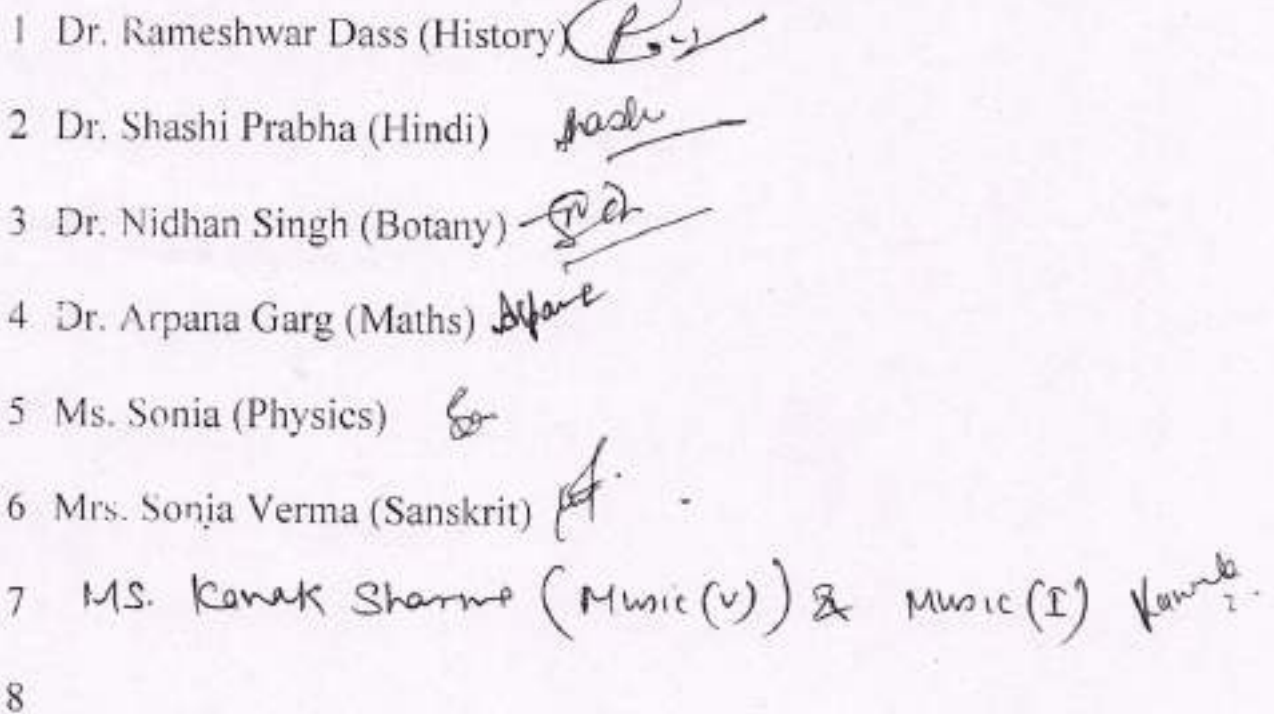 1 Dr. Rameshwar Dass (History)
2 Dr. Shashi Prabha (Hindi) Shashi
3 Dr. Nidhan Singh (Botany)
4 Dr. Arpana Garg (Maths) Arpana
5 Ms. Sonia (Physics)
6 Mrs. Sonia Verma (Sanskrit)
7 MS. Kanak Sharma (Music(v)) & Music(I) Kanak
8